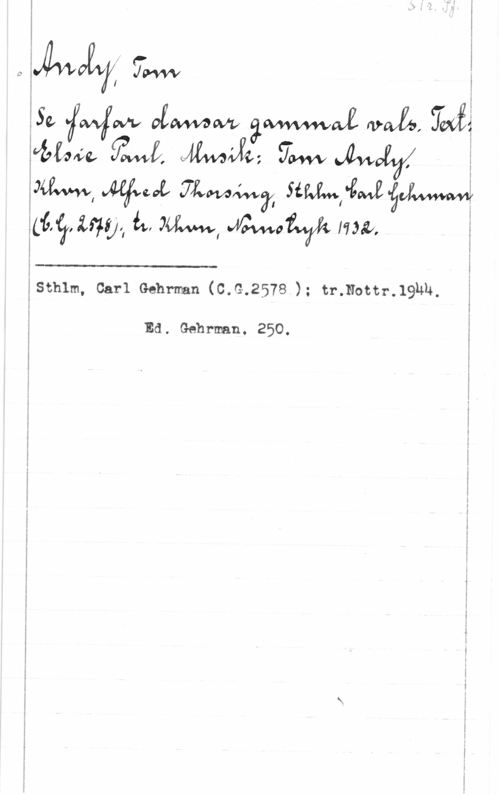 Andy, Tom
Se farfar dansar gammal vals. Text:
Elsie Paul. Musik: Tom Andy.
Khvn, Alfred Thorsing, Sthlm, Carl Gehrman
(C.G. 2578); tr. Khvn, Nornotryk 1932.
Sthlm, Carl Gehrman (C.G.2578 ); tr.Nottr.1944.
Ed. Gehrman. 250.